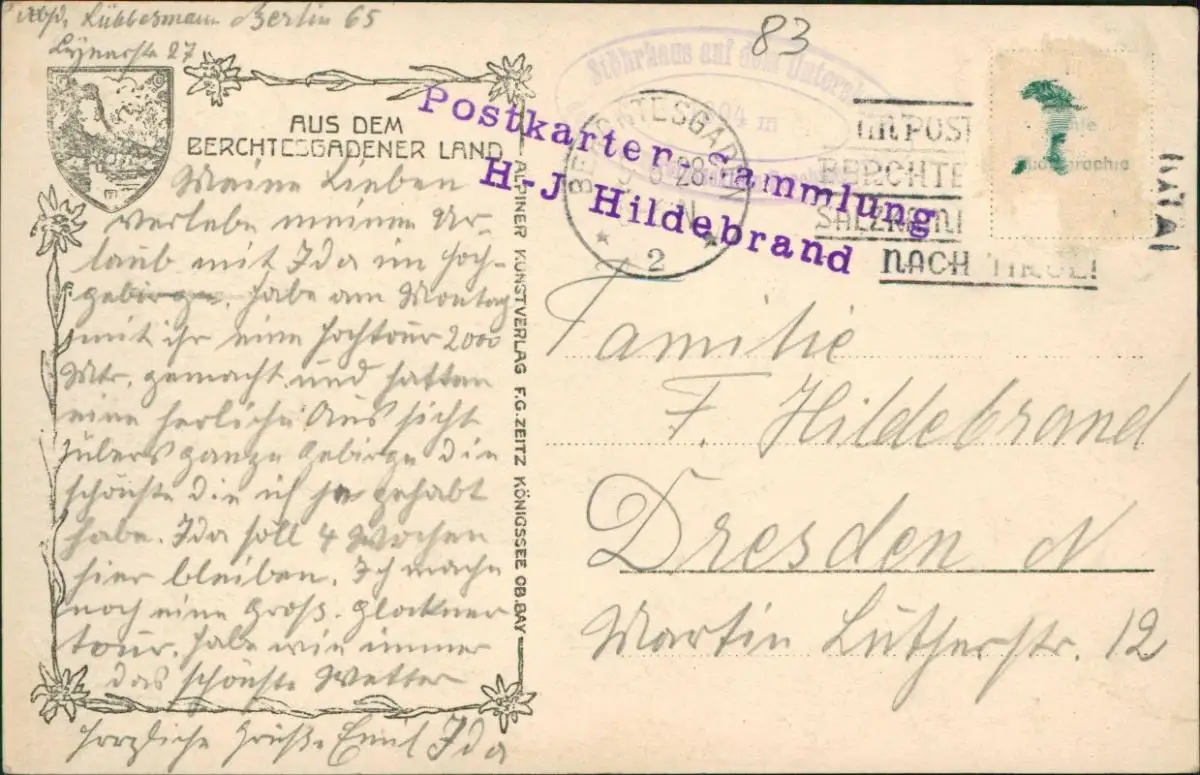 Absd. Lübbesmann Berlin 65
Lynarstr 27
83
AUS DEM
BERCHTESGADENER LAND
Stöhrhaus auf dem Untersberg
1894 m
BERCHTESGADEN
28
2
MIT POST
BERCHTE
SALZ
NACH TIROL
Postkarten-Sammlung
H-J Hildebrand
Meine Lieben
verlebe meinen Ur-
laub mit Ida im Hoch-
gebirge, habe am Montag
mit ihr eine Hochtour 2000
Mtr. gemacht und hatten
eine herliche Aussicht
übers ganze Gebirge die
schönste die ich je gehabt
habe. Ida soll 4 Wochen
hier bleiben. Ich mache
noch eine Groß. Glockner
tour. Habe wie immer
das schönste Wetter
Herzliche Grüße Emil Ida
ALPINER KUNSTVERLAG F.G. ZEITZ KÖNIGSSEE OB. BAY
Familie
F. Hildebrand
Dresden N
Martin Lutherstr. 12